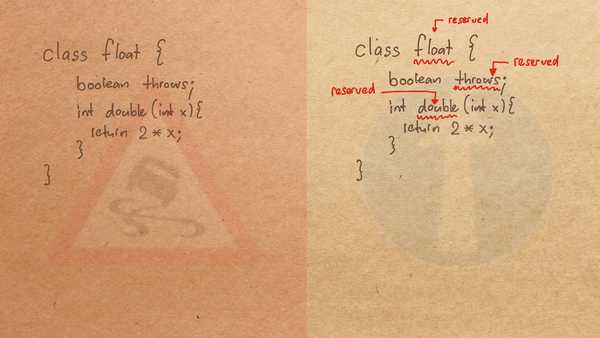 class float {
boolean throws;
int double (int x){
return 2 * x;
}
}
reserved
class float {
reserved
boolean throws;
reserved
int double (int x){
return 2 * x;
}
}